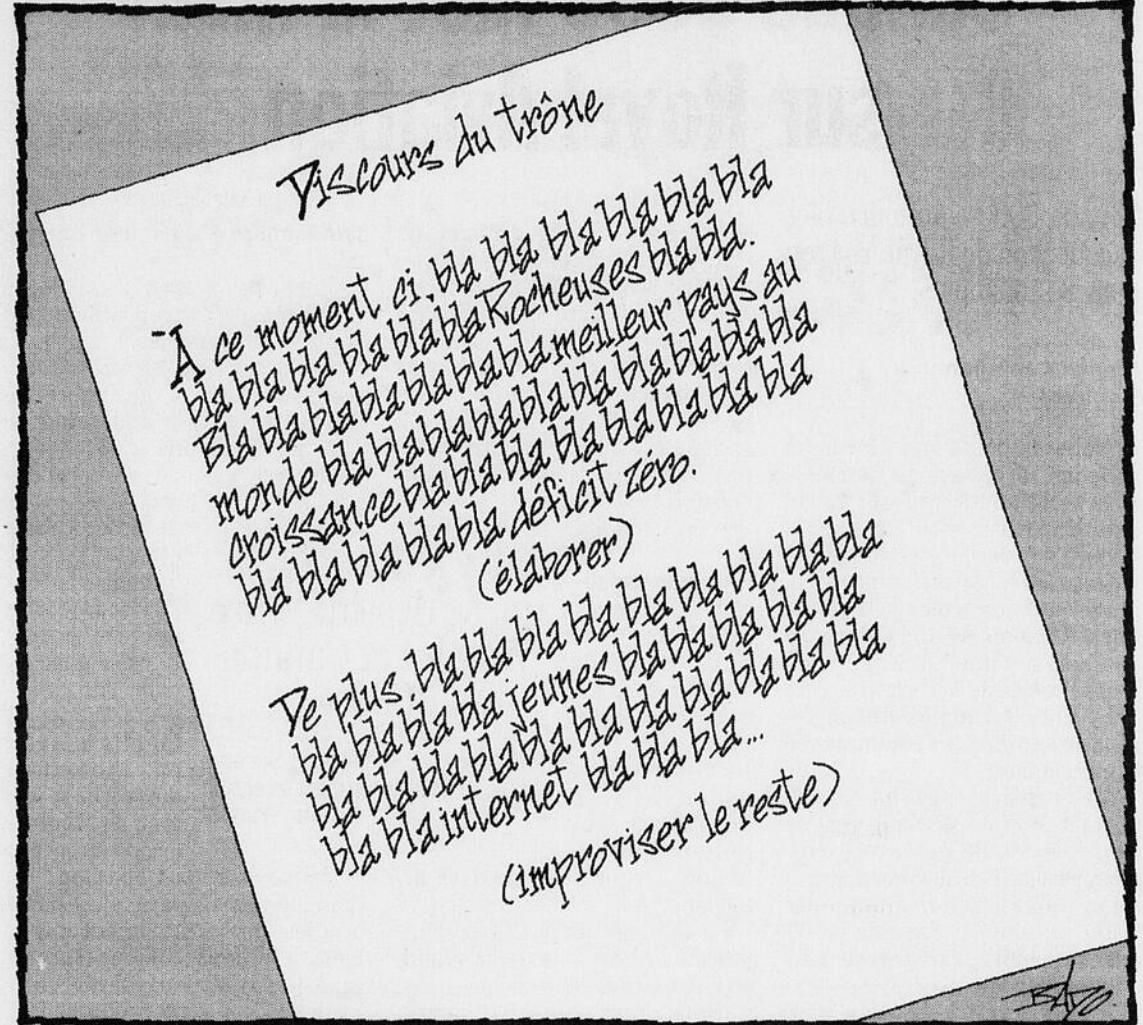 Discours du trône
"À ce moment ci, bla bla bla bla bla bla
bla bla bla bla bla bla Rocheuses bla bla.
Bla bla bla bla bla bla bla meilleur pays au
monde bla bla bla bla bla bla bla bla bla bla
croissance bla bla bla bla bla bla bla bla bla
bla bla bla bla bla bla déficit zéro.
(élaborer)
De plus, bla bla bla bla bla bla bla bla bla
bla bla bla bla jeunes bla bla bla bla bla
bla bla bla bla bla bla bla bla bla bla bla bla
bla bla internet bla bla bla...
(improviser le reste)
BADO